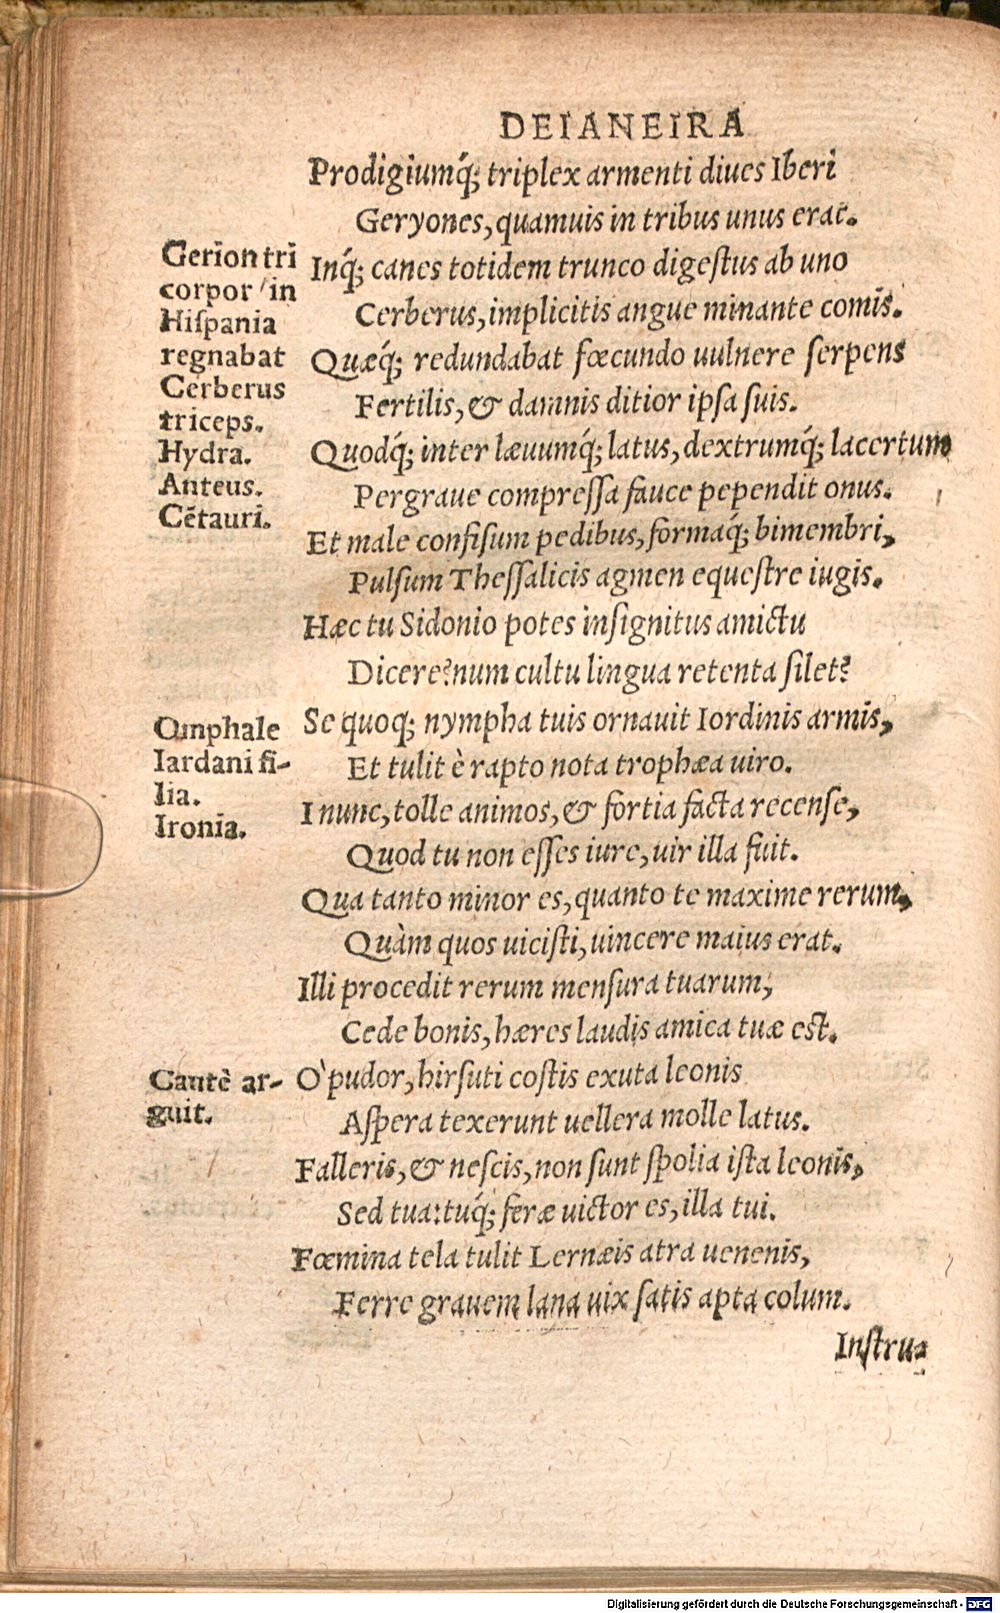 DEIANEIRA
Prodigiumq́; triplex armenti diues Iberi
Geryones, quamuis in tribus unus erat.
Gerion tri
corpor in
Hiſpania
regnabat
Cerberus
triceps.
Hydra.
Anteus.
Cētauri.
Inq́; canes totidem trunco digeſtus ab uno
Cerberus, implicitis angue minante comis.
Quæq́; redundabat fœcundo uulnere ſerpens
Fertilis, & damnis ditior ipſa ſuis.
Quodq́; inter læuumq́; latus, dextrumq́; lacertum
Pergraue compreſſa fauce pependit onus.
Et male confiſum pedibus, formaq́; bimembri,
Pulſum Theſſalicis agmen equeſtre iugis.
Hæc tu Sidonio potes inſignitus amictu
Dicere? num cultu lingua retenta ſilet?
Omphale
Iardani fi-
lia.
Ironia.
Se quoq; nympha tuis ornauit Iordinis armis,
Et tulit è rapto nota trophæa uiro.
I nunc, tolle animos, & fortia facta recenſe,
Quod tu non eſſes iure, uir illa fuit.
Qua tanto minor es, quanto te maxime rerum,
Quàm quos uiciſti, uincere maius erat.
Illi procedit rerum menſura tuarum,
Cede bonis, hæres laudis amica tuæ eſt.
Cautè ar-
guit.
O` pudor, hirſuti coſtis exuta leonis
Aſpera texerunt uellera molle latus.
Falleris, & neſcis, non ſunt ſpolia iſta leonis,
Sed tua: tuq́; feræ uictor es, illa tui.
Fœmina tela tulit Lernæis atra uenenis,
Ferre grauem lana uix ſatis apta colum.
Inſtru-
Digitalisierung gefördert durch die Deutsche Forschungsgemeinschaft - DFG